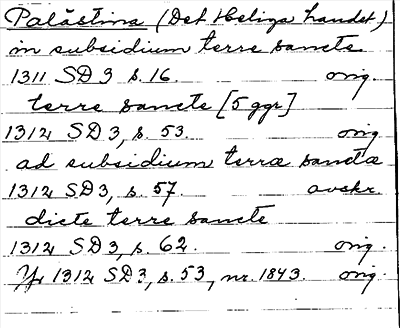 Palästina (Det Heliga landet)
in subsidium terre sancte
1311 SD 3 s. 16. orig.
terre sancte [5 ggr]
1312 SD 3, s. 53. orig
ad subsidium terræ sanctæ
1312 SD 3, s. 57. avskr.
dicte terre sancte
1312 SD 3, s. 62. orig.
1312 SD 3, s. 53, nr. 1843. orig.